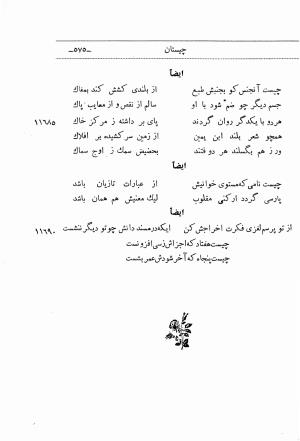 چیستان
ـ۵۷۵ـ
ایضاً
چیست آنجنس کو بجنبش طبع از بلندی کشش کند بمغاك
جسم دیگر چو ضم شود با او سالم از نقص و از معایب پاك
۱۱۶۸۵ هردو با یکدگر روان گردند پای بر داشته ز مرکز خاك
همچو شعر بلند ابن یمین از زمین سر کشیده بر افلاك
ور ز هم بگسلند هر دو فتند بحضیض سمك ز اوج سماك
ایضاً
چیست نامی که مستوی خوانیش از عبارات تازیان باشد
پارسی گردد ار کنی مقلوب لیك معنیش هم همان باشد
ایضاً
۱۱۶۹۰ از تو پرسم لغزی فکرت اخراجش کن ایکه در مسند دانش چو تو دیگر ننشست
چیست هفتاد که اجزاش ز سی افزونست
چیست پنجاه که آخر شودش عمر بشست